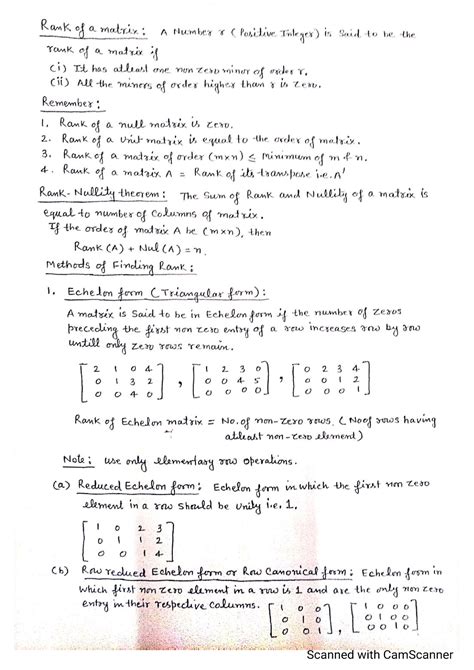 Rank of a matrix: A Number r (Positive Integer) is Said to be the
rank of a matrix if
(i) It has atleast one non zero minor of order r.
(ii) All the minors of order higher than r is zero.
Remember:
1. Rank of a null matrix is zero.
2. Rank of a Unit matrix is equal to the order of matrix.
3. Rank of a matrix of order (m×n) ≤ minimum of m & n.
4. Rank of a matrix A = Rank of its transpose i.e. A'
Rank-Nullity theorem: The Sum of Rank and Nullity of a matrix is
equal to number of Columns of matrix.
If the order of matrix A be (m×n), then
Rank (A) + Nul (A) = n.
Methods of Finding Rank:
1. Echelon form (Triangular form):
A matrix is Said to be in Echelon form if the number of zeros
preceding the first non zero entry of a row increases row by row
untill only zero rows remain.
[2 1 0 4] , [1 2 3 0] , [0 2 3 4]
[0 1 3 2] [0 0 4 5] [0 0 1 2]
[0 0 4 0] [0 0 0 0] [0 0 0 0]
Rank of Echelon matrix = No. of non-zero rows. (No of rows having
atleast non-zero element)
Note: use only elementary row operations.
(a) Reduced Echelon form: Echelon form in which the first non zero
element in a row should be unity i.e. 1.
[1 0 2 3]
[0 1 1 2]
[0 0 1 4]
(b) Row reduced Echelon form or Row Canonical form: Echelon form in
which first non zero element in a row is 1 and are the only non zero
entry in their respective columns. [1 0 0] , [1 0 0 0]
[0 1 0] [0 1 0 0]
[0 0 1] [0 0 1 0]
Scanned with CamScanner